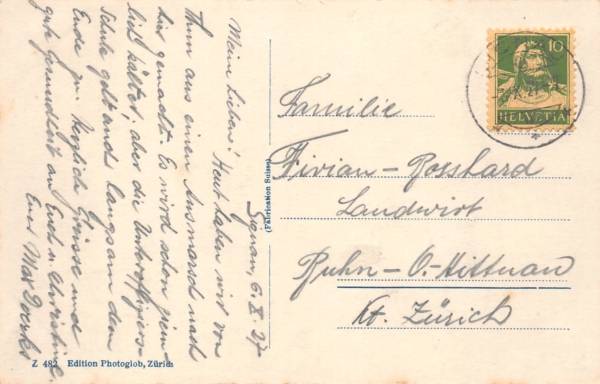 Signau, 6. X. 27
Meine Lieben! Heut haben wir von
Thun aus einen Ausmarsch nach
hier gemacht. Es wird schon ziem-
lich kälter, aber die Unteroffiziers-
Schule geht auch langsam dem
Ende zu. Herzliche Grüsse und
gute Gesundheit an Euch u. Christine.
Euer Max
Familie
Vivian-Bosshard
Landwirt
O.-Hittnau
Kt. Zürich
10
HELVETIA
(Fabrication Suisse)
Z 482 Edition Photoglob, Zürich